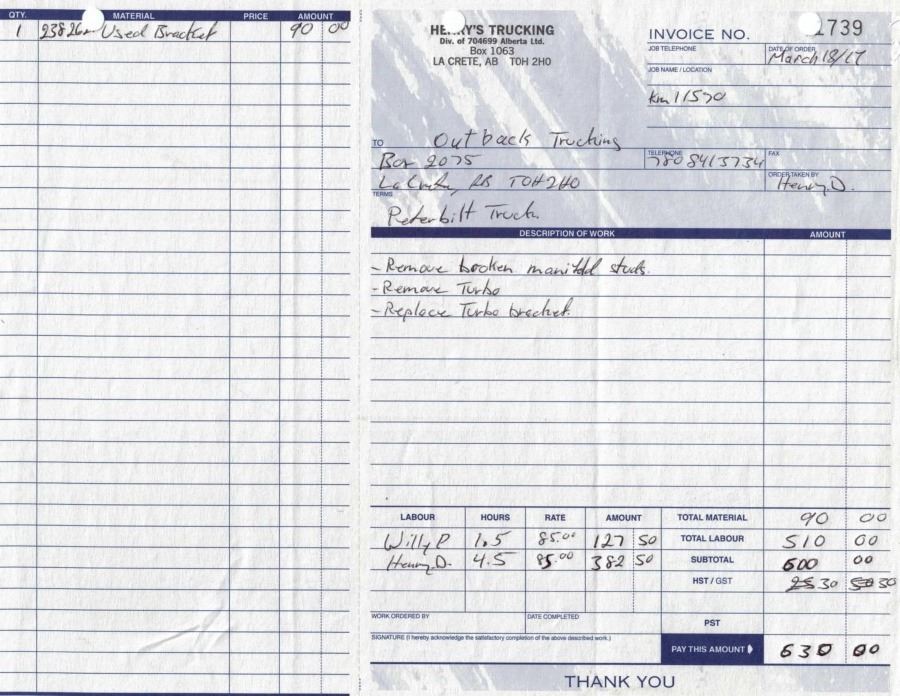 QTY. MATERIAL PRICE AMOUNT
1 Used Bracket 90 00
HENRY'S TRUCKING
Div. of 704699 Alberta Ltd.
Box 1063
LA CRETE, AB T0H 2H0
INVOICE NO. 1739
JOB TELEPHONE
DATE OF ORDER
March 18/17
JOB NAME / LOCATION
km 11590
TO Outback Trucking
Box 2075
TELEPHONE
780 8413734
FAX
La Crete, AB T0H2H0
ORDER TAKEN BY
Henry D.
TERMS
Peterbilt Truck
DESCRIPTION OF WORK AMOUNT
- Remove broken manifold studs.
- Remove Turbo
- Replace Turbo bracket.
LABOUR HOURS RATE AMOUNT
Willy P 1.5 85.00 127 50
Henry D. 4.5 85.00 382 50
TOTAL MATERIAL 90 00
TOTAL LABOUR 510 00
SUBTOTAL 600 00
HST / GST 30
WORK ORDERED BY
DATE COMPLETED
PST
SIGNATURE (I hereby acknowledge the satisfactory completion of the above described work.)
PAY THIS AMOUNT 630 00
THANK YOU